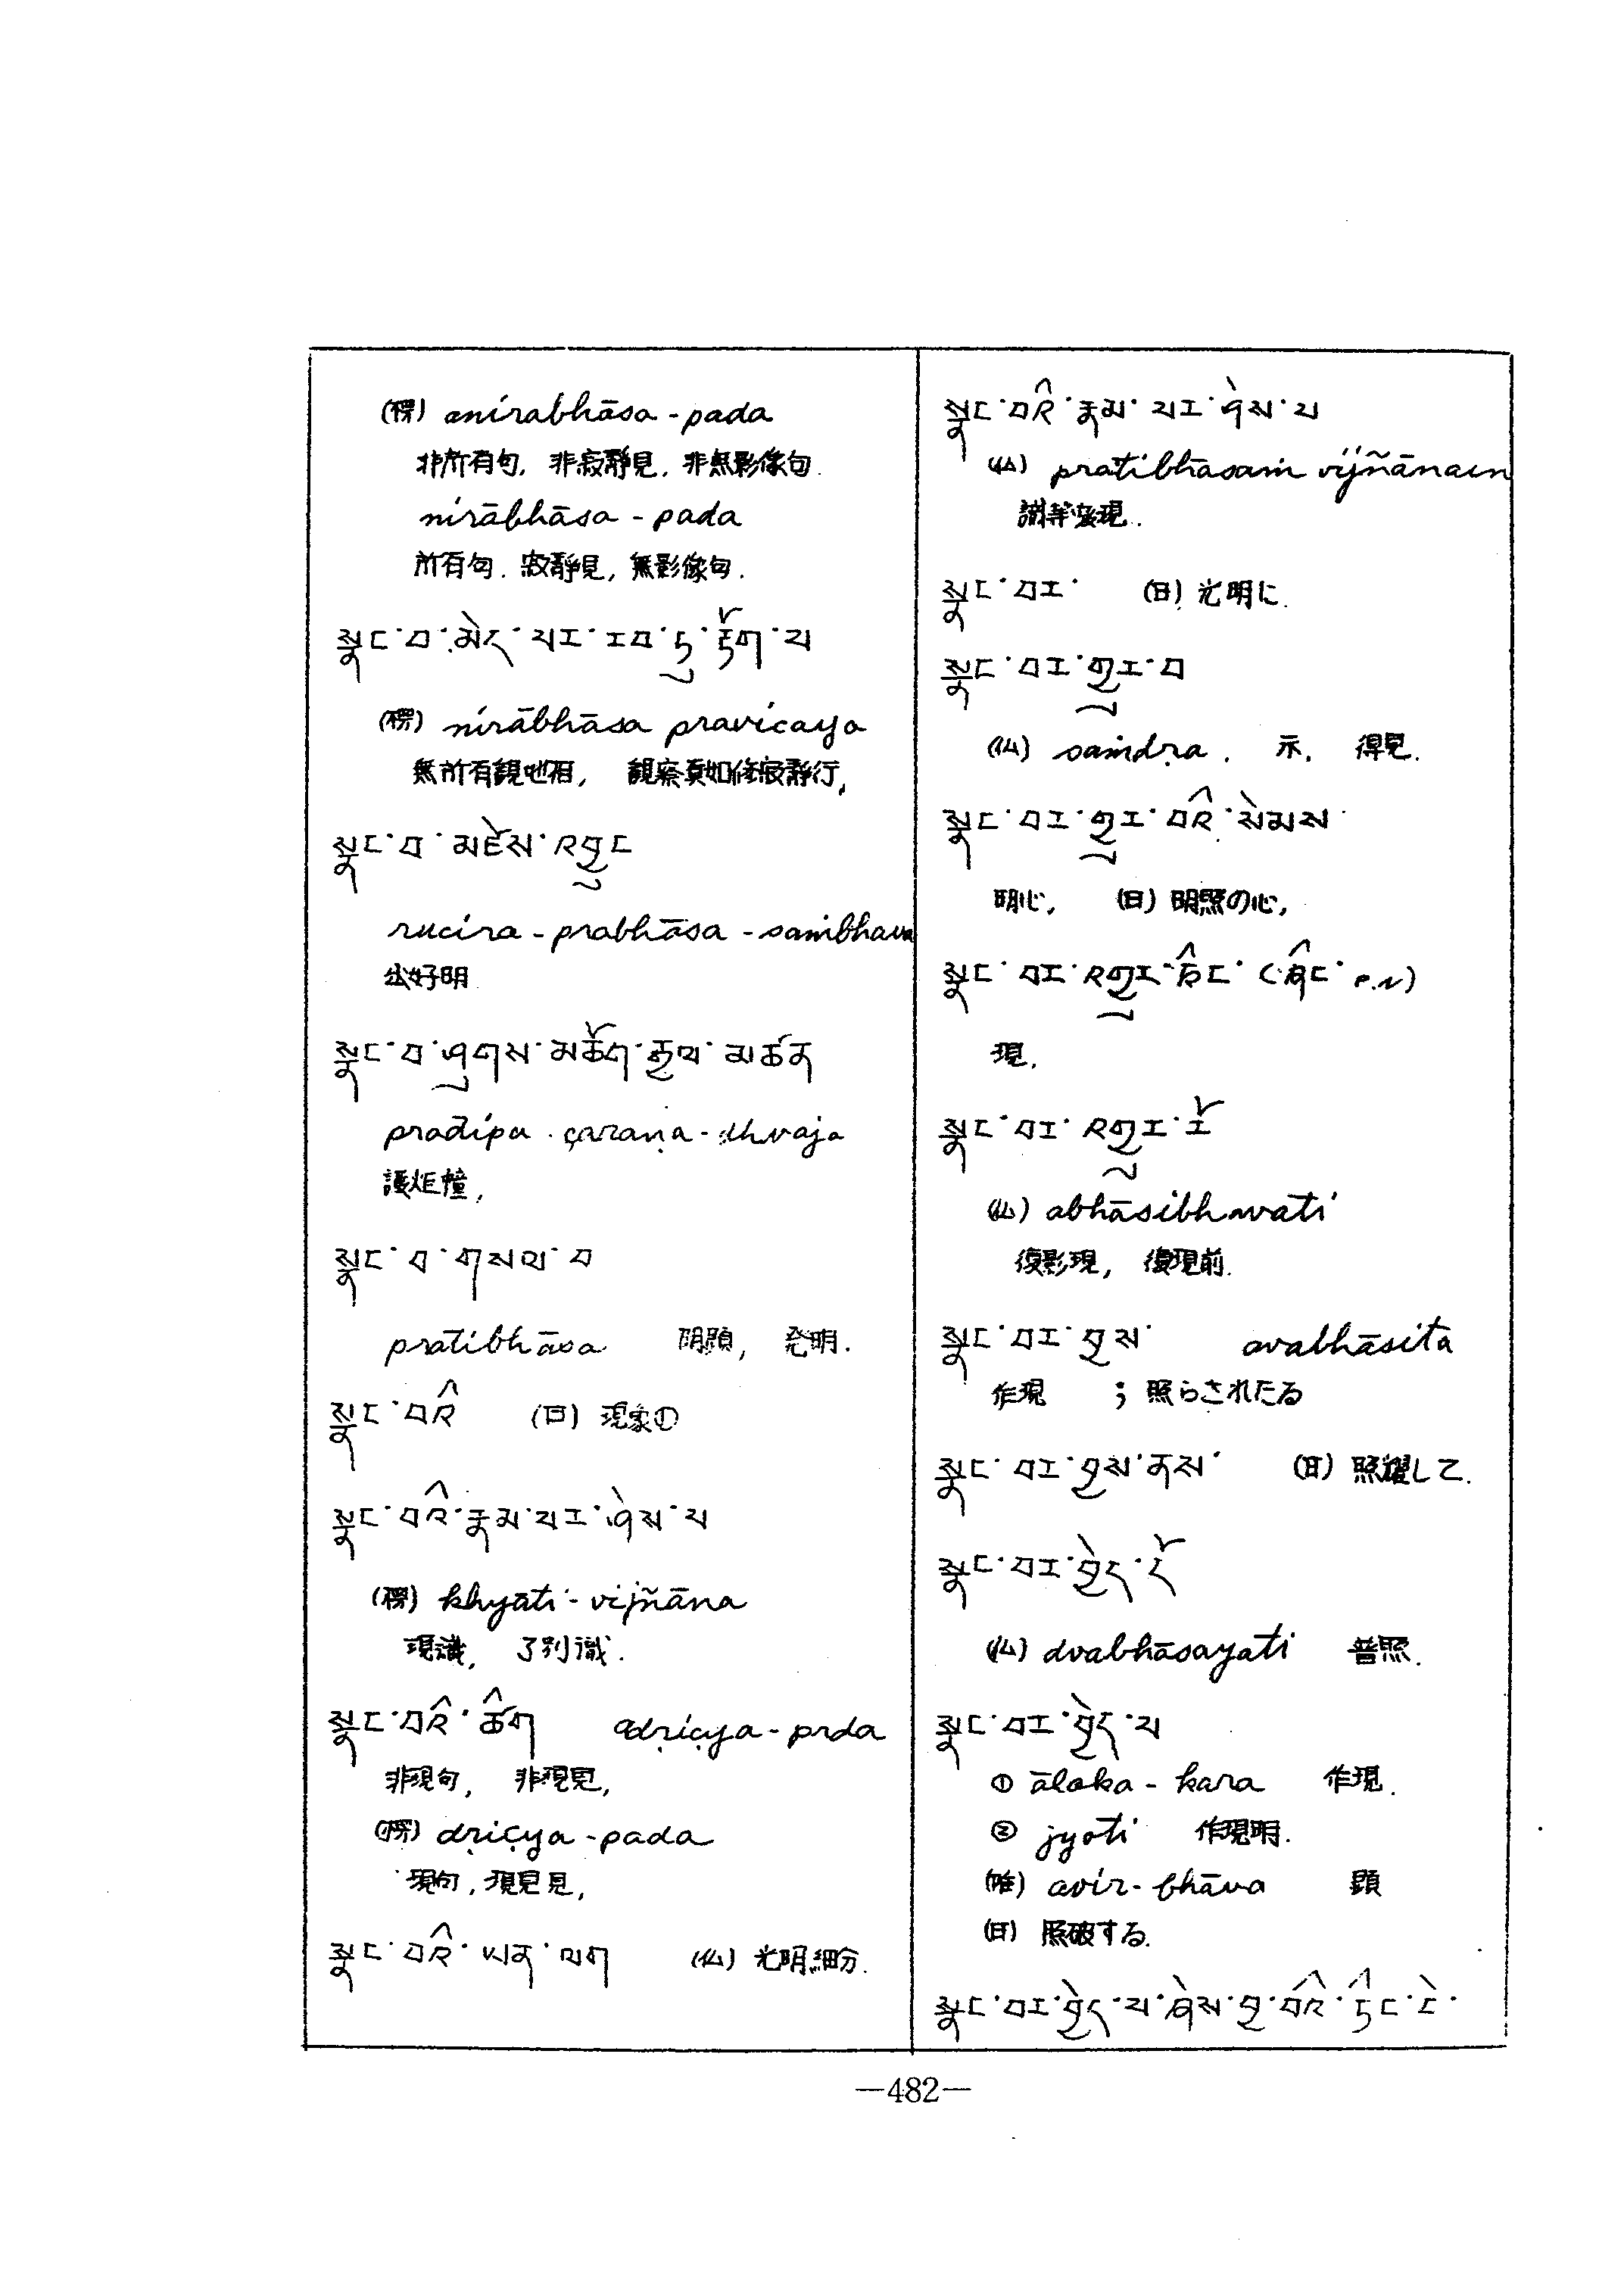 (楞) anirabhāsa - pada
非所有句, 非寂靜見, 非無影像句.
nirābhāsa - pada
所有句. 寂靜見, 無影像句.
སྣང་བ་མེད་པར་རབ་ཏུ་རྟོག་པ
(楞) nirābhāsa pravicaya
無所有觀地相, 觀察真如修寂靜行,
སྣང་བ་མཛེས་འབྱུང
rucira - prabhāsa - saṁbhava
出好明
སྣང་བ་ཤུགས་མཆོག་རྒྱལ་མཚན
pradīpa . çaraṇa - dhvaja
護炬幢,
སྣང་བ་གསལ་བ
pratibhāsa 明顕, 発明.
སྣང་བའི (日) 現象の
སྣང་བའི་རྣམ་པར་ཤེས་པ
(楞) khyāti - vijñāna
現識, 了別識.
སྣང་བའི་ཚིག adṛiçya - prda
非現句, 非現見,
(楞) dṛiçya - pada
現句, 現見見,
སྣང་བའི་ཡན་ལག (仏) 光明細分.
སྣང་བའི་རྣམ་པར་ཤེས་པ
(仏) pratibhāsaṁ vijñānaṁ
識等変現.
སྣང་བར་ (日) 光明に.
སྣང་བར་གྱུར་བ
(仏) saṁdṛa . 示, 得見.
སྣང་བར་གྱུར་བའི་སེམས་
明心, (日) 明照の心,
སྣང་བར་འགྱུར་ཞིང་ (ཞིང་ P.N)
現.
སྣང་བར་འགྱུར་རོ
(仏) abhāsibhavati
復影現, 復現前.
སྣང་བར་བྱས་ avabhāsita
作現 ; 照らされたる
སྣང་བར་བྱས་ནས་ (日) 照耀して.
སྣང་བར་བྱེད་དོ
(仏) avabhāsayati 普照.
སྣང་བར་བྱེད་པ
① āloka - kara 作現.
② jyoti 作現明.
(唯) avir - bhāva 顕
(日) 照破する.
སྣང་བར་བྱེད་པ་ཞེས་བྱ་བའི་ཏིང་ངེ་
—482—